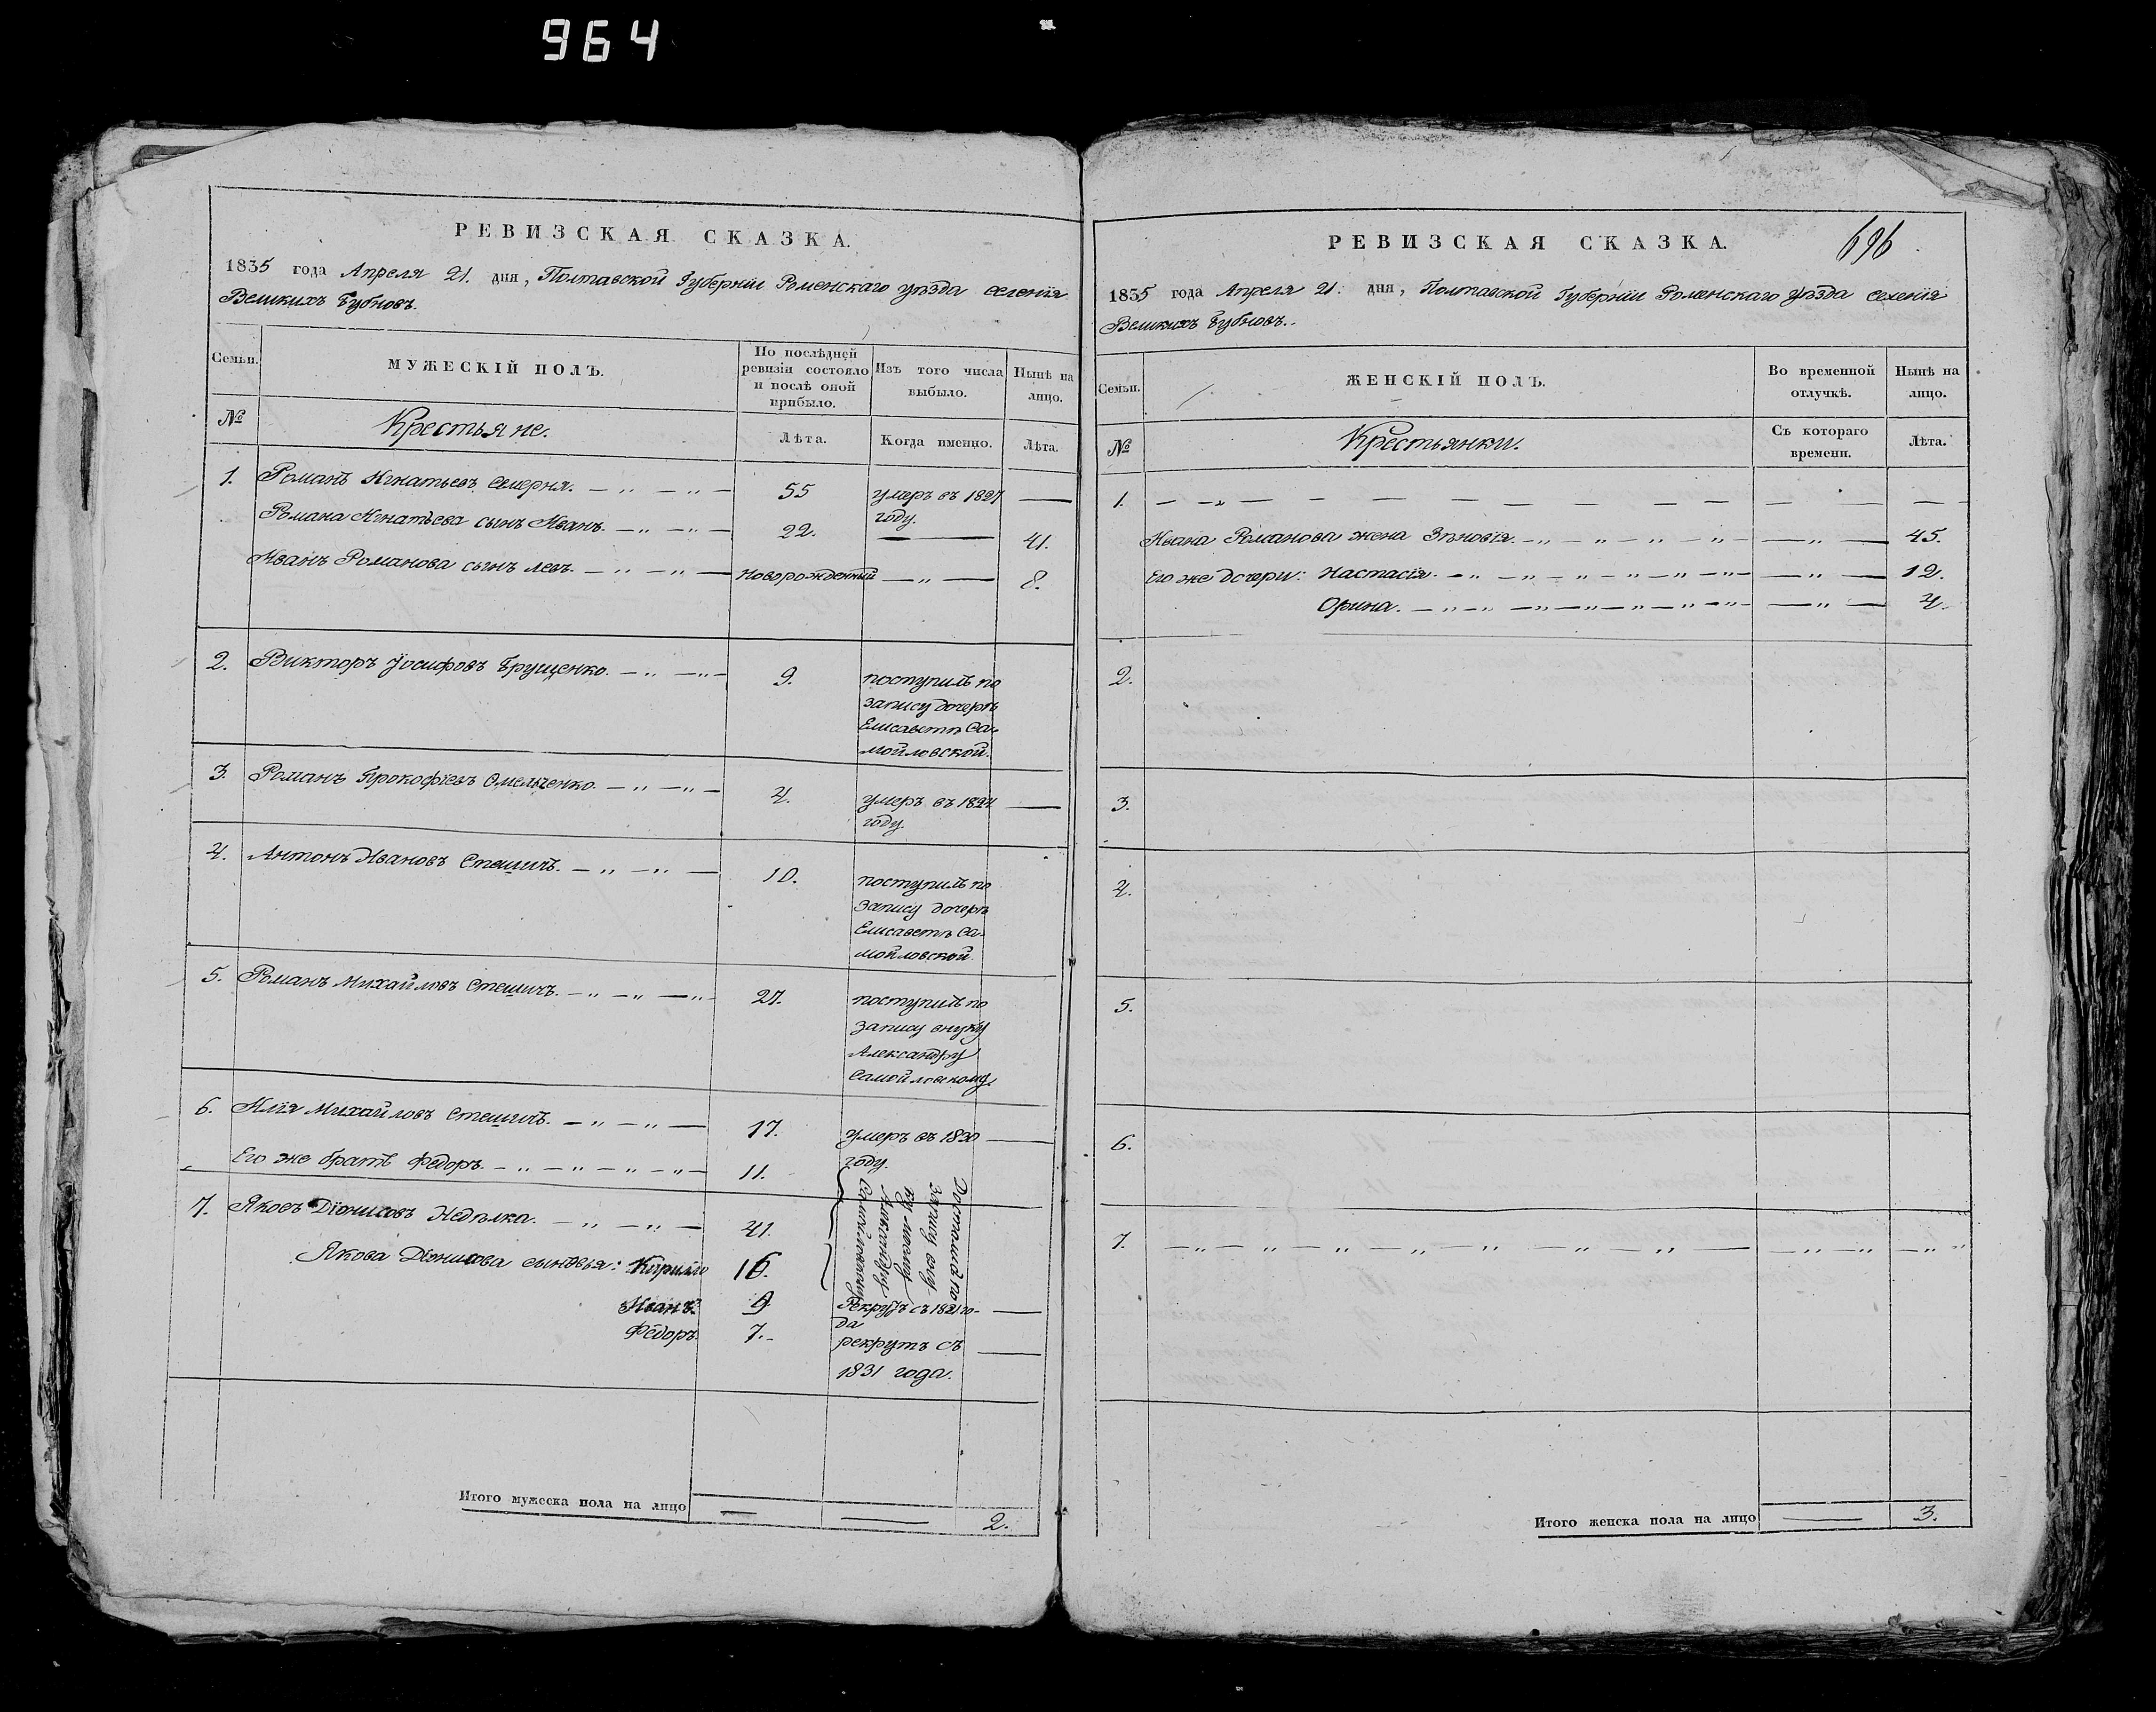 964
РЕВИЗСКАЯ СКАЗКА.
1835 года Апреля 21. дня, Полтавской Губерніи Роменскаго уѣзда селенія
Великихъ Бубновъ.
Семьи. МУЖЕСКІЙ ПОЛЪ. По послѣдней ревизіи состояло и послѣ оной прибыло. Изъ того числа выбыло. Нынѣ на лицо.
№ Крестьяне. Лѣта. Когда именно. Лѣта.
1. Романъ Игнатьевъ Семерня. — „ — „ — 55 умеръ въ 1827 году. —
Романа Игнатьева сынъ Иванъ. — „ — „ — 22. — 41.
Иванъ Романова сынъ Левъ. — „ — „ — новорожденный — „ — 8.
2. Викторъ Іосифовъ Грущенко. — „ — „ — 9. поступилъ по
запису дочерѣ
Елисаветѣ Са-
мойловской.
3. Романъ Прокофіевъ Омельченко. — „ — „ — 4. умеръ въ 1824 —
году.
4. Антонъ Ивановъ Стешичъ. — „ — „ — 10. поступилъ по
запису дочерѣ
Елисаветѣ Са-
мойловской.
5. Романъ Михайловъ Стешичъ. — „ — „ — „ — 27. поступилъ по
запису внуку
Александру
Самойловскому.
6. Илія Михайловъ Стешичъ. — „ — „ — 17. умеръ въ 1830 —
году.
Его же братъ Федоръ. — „ — „ — „ — „ — 11.
7. Яковъ Діонисовъ Недѣлка. — „ — „ — 41.
Якова Діонисова сыновья: Кирило 16.
Достался по
запису
Александру
Самойловскому
Иванъ. 9 Рекрутъ съ 1821 го- —
да
Федоръ. 7. рекрутъ съ —
1831 года.
Итого мужеска пола на лицо — — 2.
РЕВИЗСКАЯ СКАЗКА. 696
1835 года Апреля 21. дня, Полтавской Губерніи Роменскаго уѣзда селенія
Великихъ Бубновъ.
Семьи. ЖЕНСКІЙ ПОЛЪ. Во временной отлучкѣ. Нынѣ на лицо.
№ Крестьянки. Съ котораго времени. Лѣта.
1. — „ — — — — — — — — —
Ивана Романова жена Зѣновія. — „ — „ — „ — „ — — „ — 45.
Его же дочери: Настасія. — „ — „ — „ — „ — „ — — „ — 12.
Орина. — „ — „ — „ — „ — „ — „ — — „ — 4.
2.
3.
4.
5.
6.
7. — „ — „ — „ — „ — „ — „ — „ — — „ — „ — — „ „
Итого женска пола на лицо — 3.